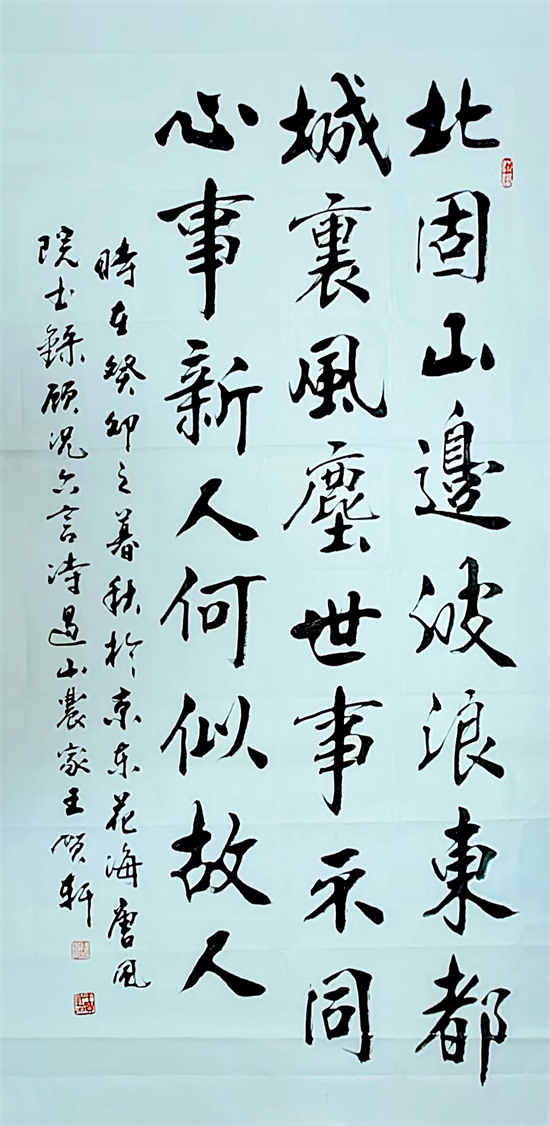 北固山邊波浪東都
城裏風塵世事不同
心事新人何似故人
時在癸卯之暮秋於京东花海唐風
院书錄顾况六言诗過山農家王轩